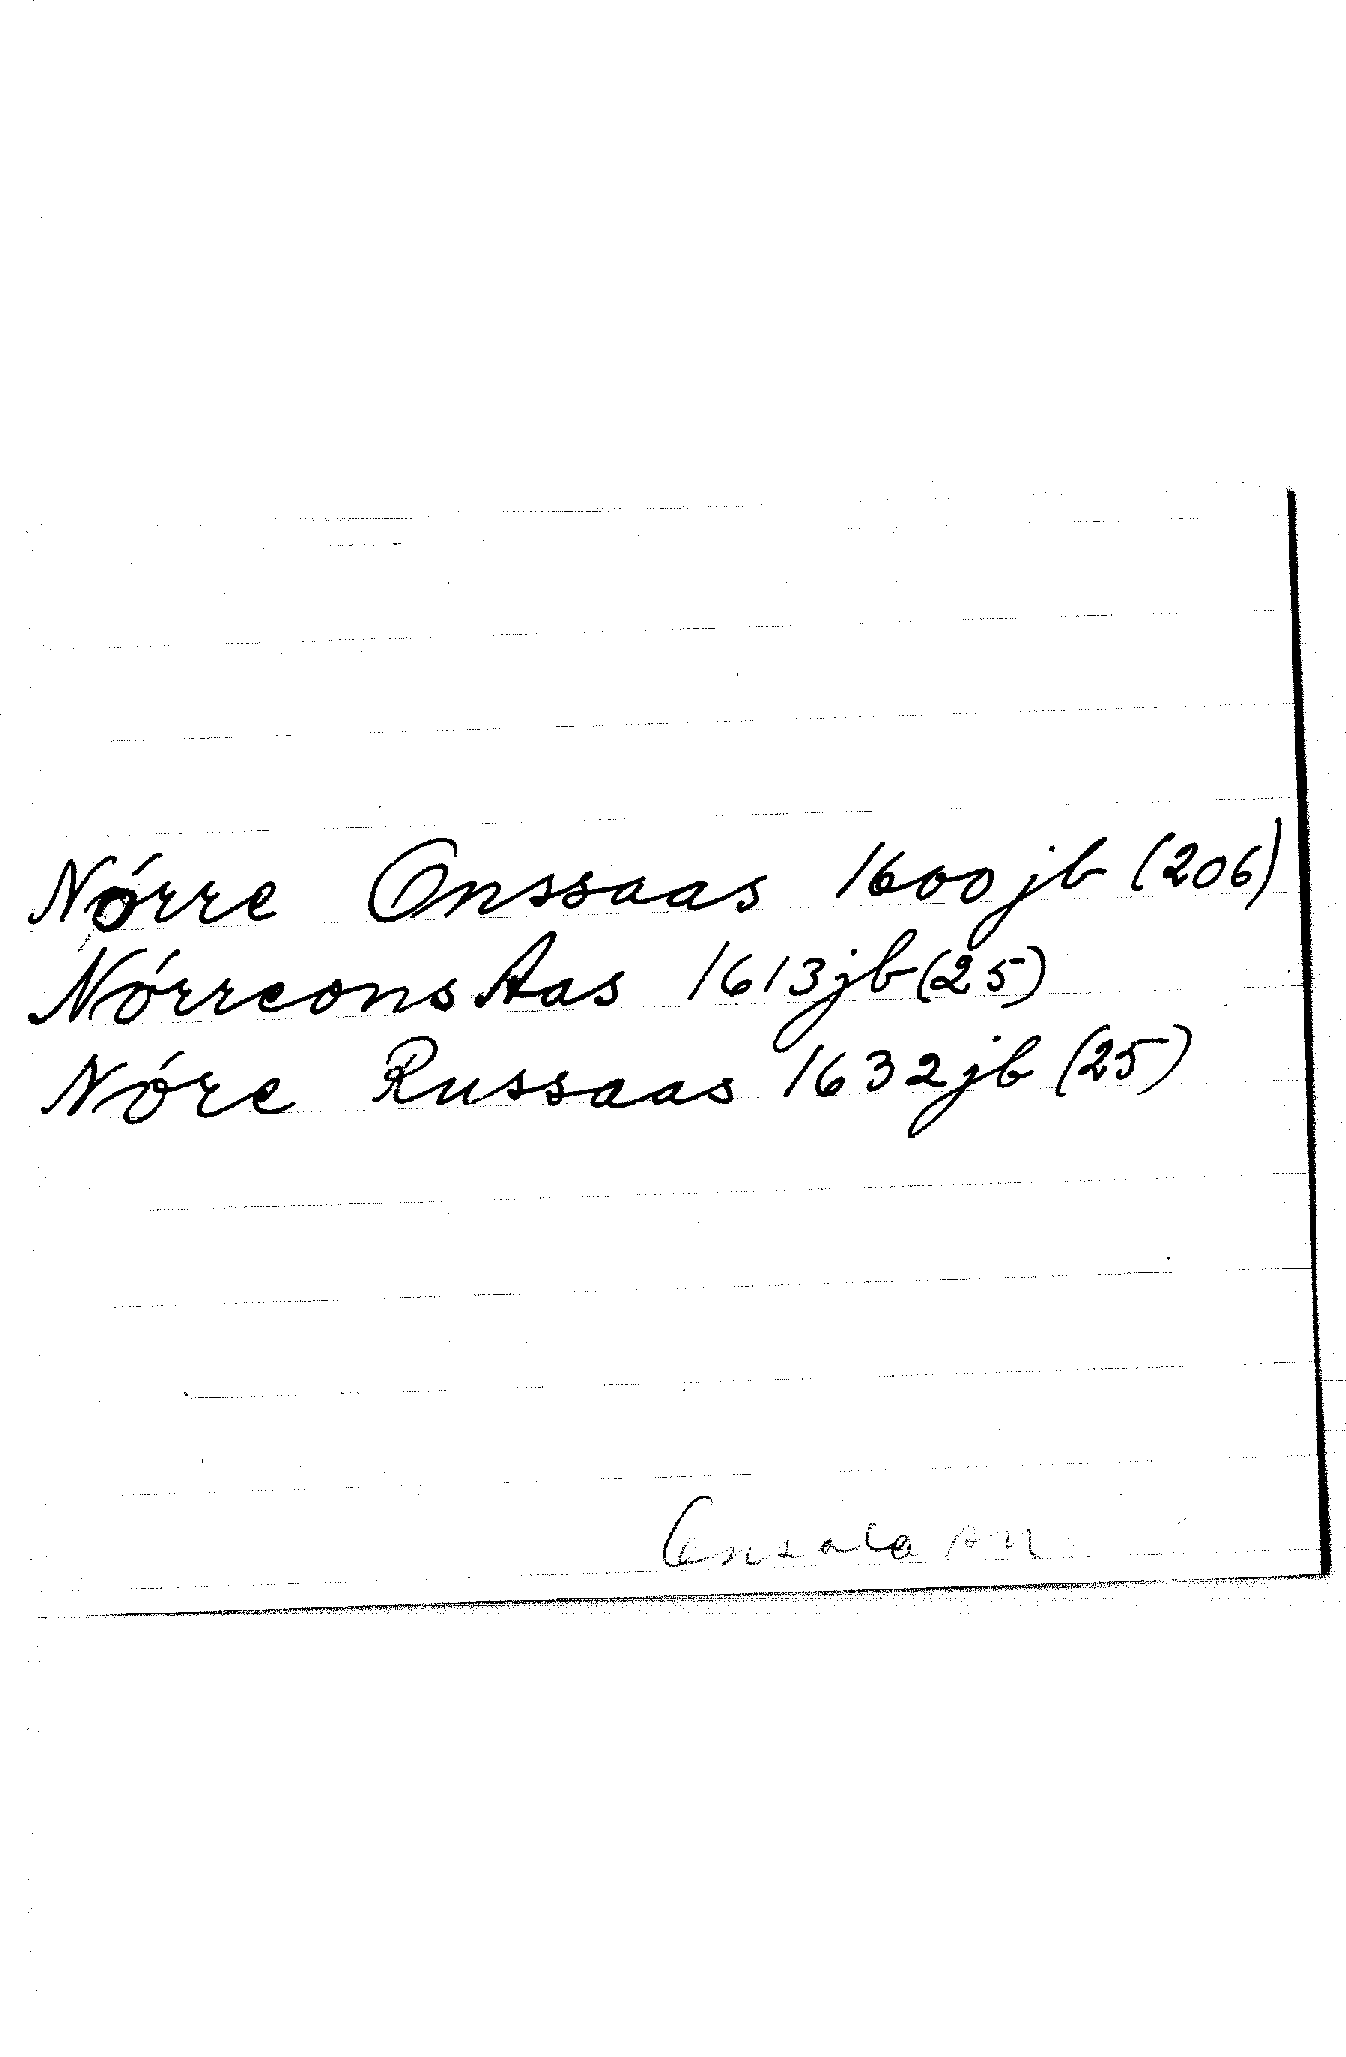 Nórre Onssaas 1600 jb (206)
Nórreons Aas 1613 jb (25)
Nóre Russaas 1632 jb (25)
Onsala sn